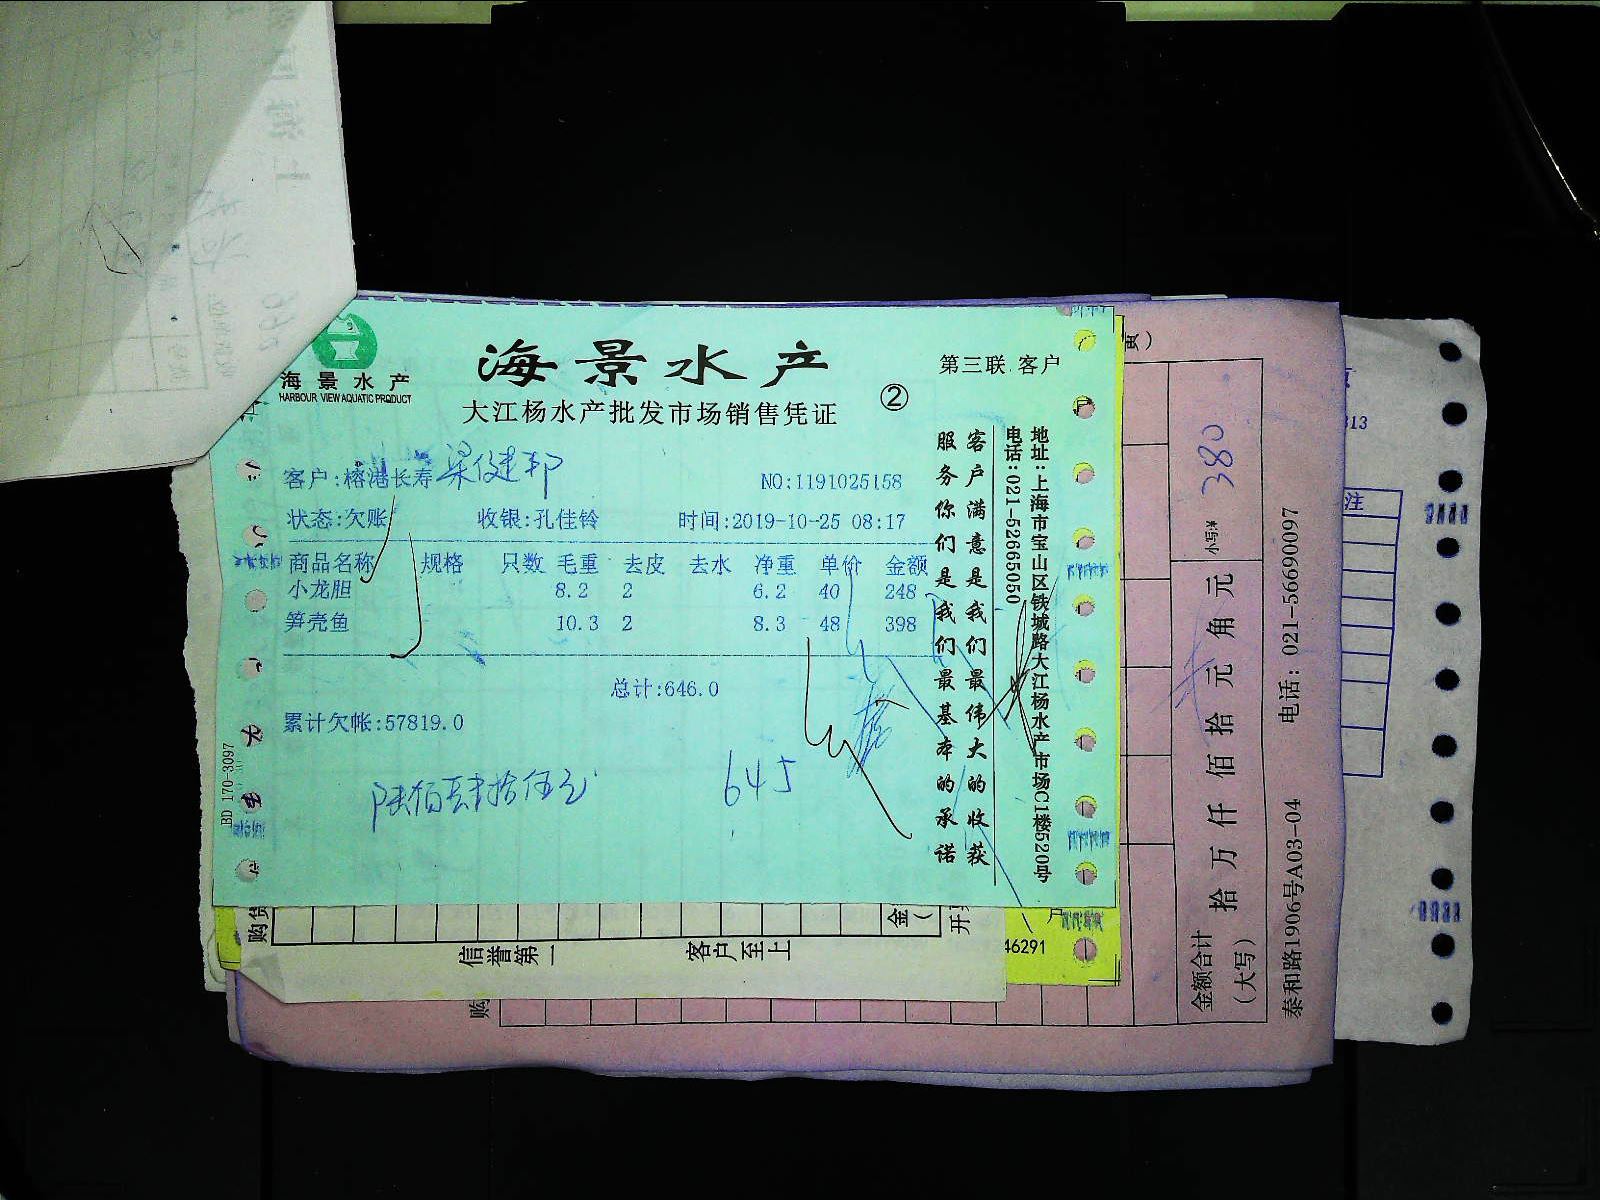 海景水产
HARBOUR VIEW AQUATIC PRODUCT
海景水产
第三联 客户
大江杨水产批发市场销售凭证
②
客户:榕港长寿 梁健邦
NO:1191025158
状态:欠账 收银:孔佳铃 时间:2019-10-25 08:17
商品名称 规格 只数 毛重 去皮 去水 净重 单价 金额
小龙胆 8.2 2 6.2 40 248
笋壳鱼 10.3 2 8.3 48 398
总计:646.0
累计欠帐:57819.0
陆佰肆拾伍元
645
客户满意是我们最伟大的收获
服务你们是我们最基本的承诺
地址:上海市宝山区铁城路大江杨水产市场C1楼520号
电话:021-52665050
BD 170-3097
信誉第一 客户至上
46291
小写:¥ 380
金额合计
(大写)
拾万仟佰拾元角元
泰和路1906号A03-04 电话: 021-56690097
注
313